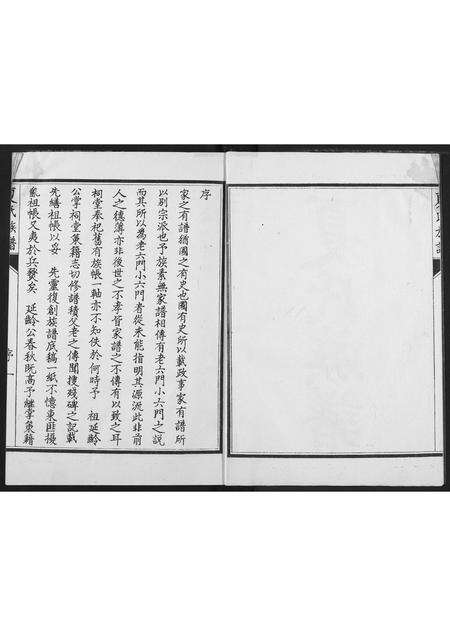 序
家之有譜猶國之有史也國有史所以載政事家有譜所
以別宗派也予族素無家譜相傳有老六門小六門之說
而其所以為老六門小六門者從來能指明其源派此非前
人之德薄亦非後世之不孝皆家譜之不傳有以致之耳
祠堂奉祀舊有族帳一軸亦不知佚於何時予 祖延齡
公掌祠堂策籍志切修譜積父老之傳聞搜殘碑之記載
先繕祖帳以妥 先靈復創族譜底稿一紙不憶東匪擾
亂祖帳又夷於兵燹矣 延齡公春秋既高予繼掌策籍
氏族譜
序 一